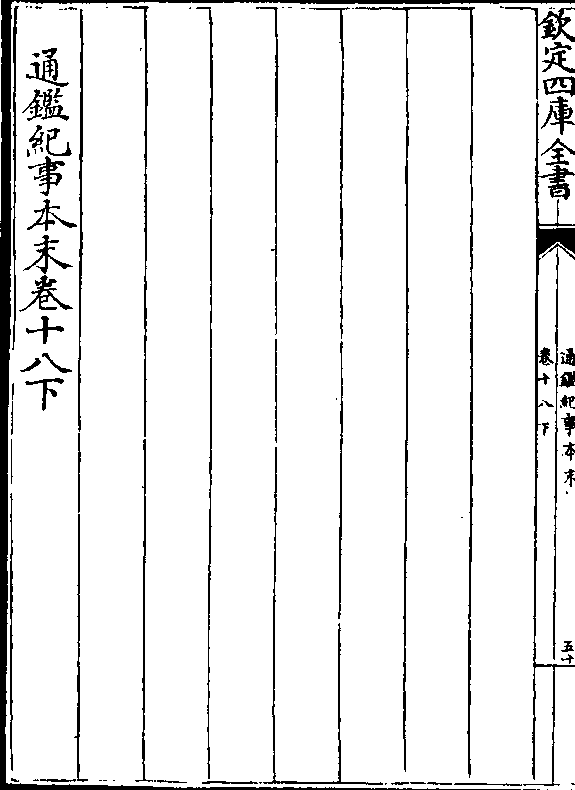 欽定四庫全書
通鑑紀事本末
卷十八下
五十
通鑑紀事本末卷十八下